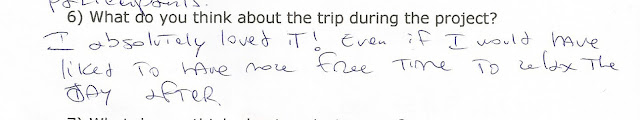 participants.
6) What do you think about the trip during the project?
I absolutely loved it! Even if I would have
liked to have more free time to relax the
day after.